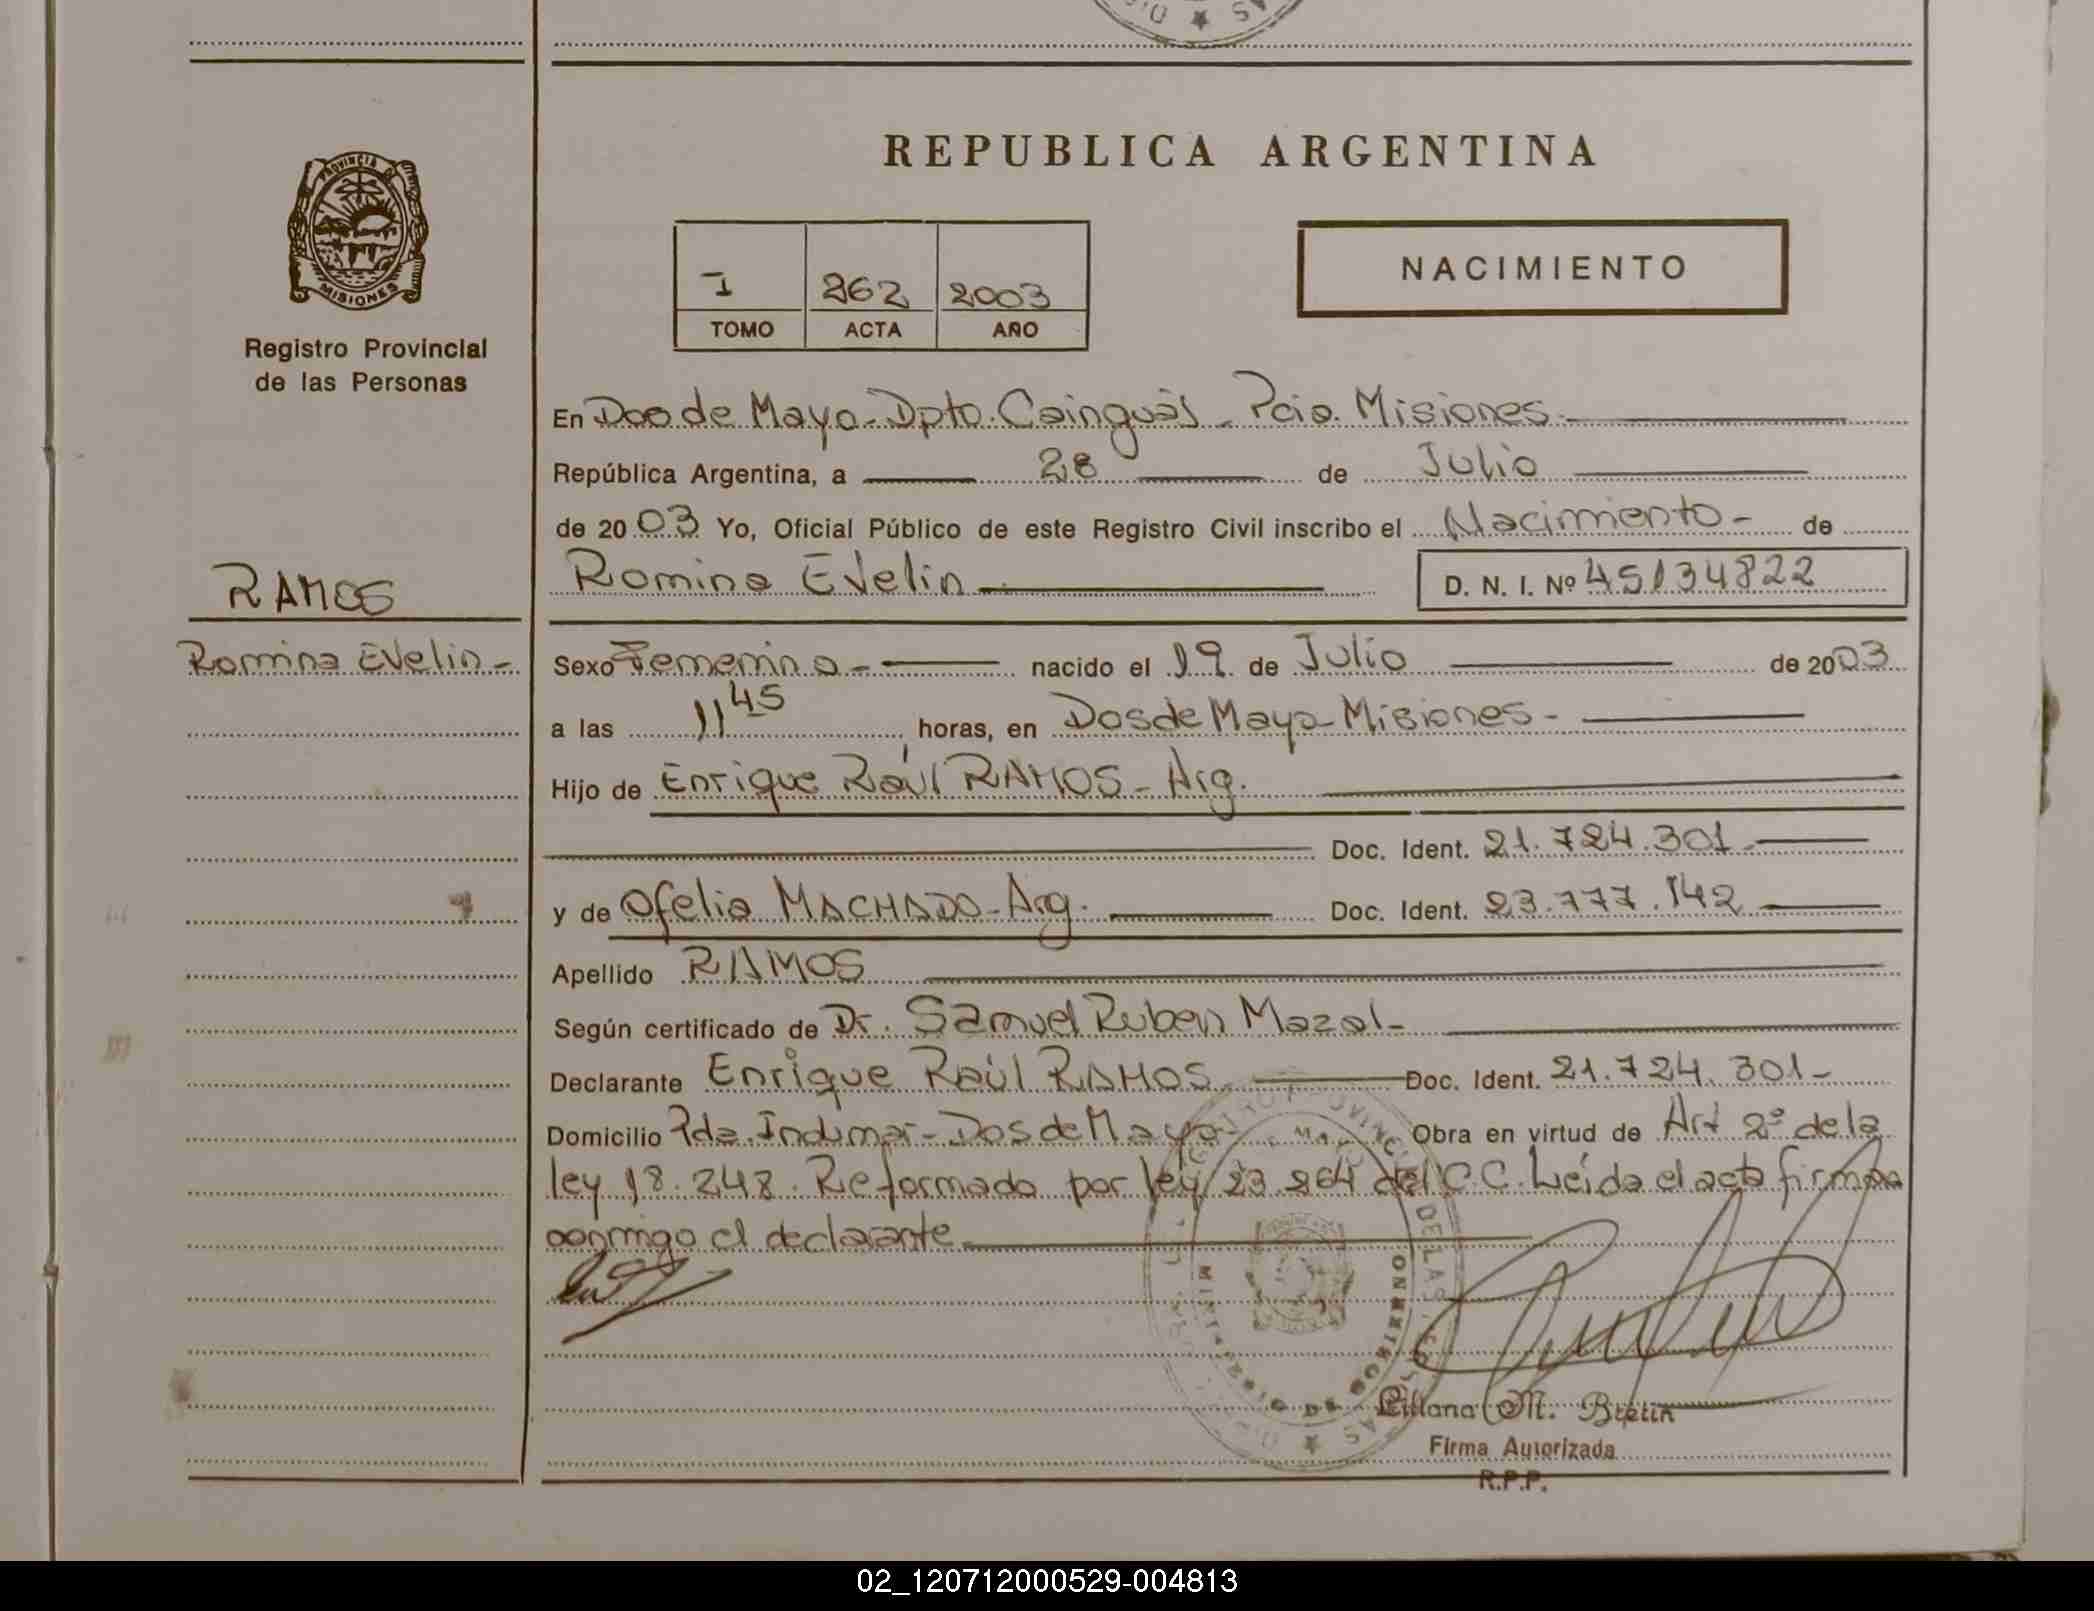 REPUBLICA ARGENTINA
PROVINCIA DE
MISIONES
Registro Provincial
de las Personas
I 262 2003
TOMO ACTA AÑO
NACIMIENTO
En Dos de Mayo - Dpto. Cainguás - Pcia. Misiones.
República Argentina, a 28 de Julio
de 2003 Yo, Oficial Público de este Registro Civil inscribo el Nacimiento - de
Romina Evelin D. N. I. Nº 45134822
RAMOS
Romina Evelin -
Sexo Femenino - nacido el 19 de Julio de 2003
a las 11 45 horas, en Dos de Mayo - Misiones -
Hijo de Enrique Raúl RAMOS - Arg.
Doc. Ident. 21.724.301
y de Ofelia MACHADO - Arg. Doc. Ident. 23.777.142
Apellido RAMOS
Según certificado de Dr. Samuel Ruben Mazal -
Declarante Enrique Raúl RAMOS Doc. Ident. 21.724.301 -
Domicilio Pda. Indumar - Dos de Mayo - Obra en virtud de Art 2º de la
ley 18.248. Reformada por ley 23.264 del C.C. Leída el acta firma
conmigo el declarante
Liliana M. Bretin
Firma Autorizada
R.P.P.
02_120712000529-004813